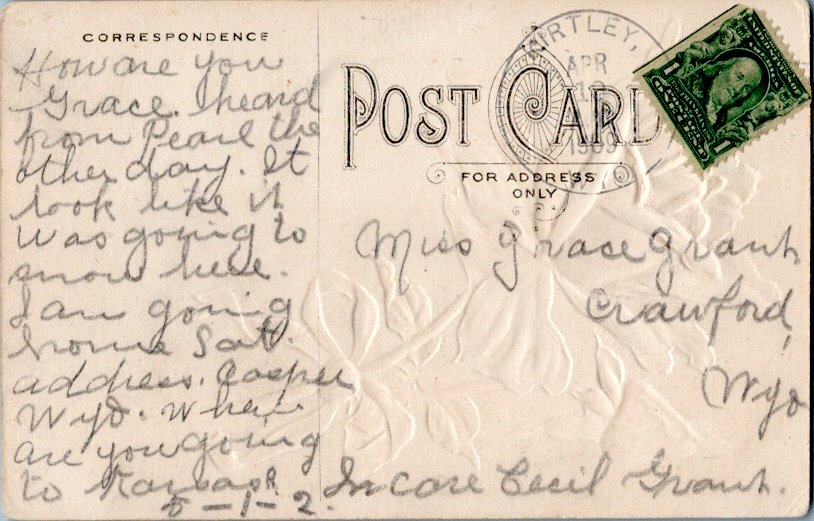 CORRESPONDENCE
How are you
Grace. heard
from Pearl the
other day. It
look like it
was going to
snow here.
I am going
home Sat.
address. Casper
Wyo. When
are you going
to Kansas
5-1-2.
POST CARD
FOR ADDRESS
ONLY
KIRTLEY,
APR
1909
WYO
1
1
Miss Grace Grant
Crawford,
Wyo
In care Cecil Grant.